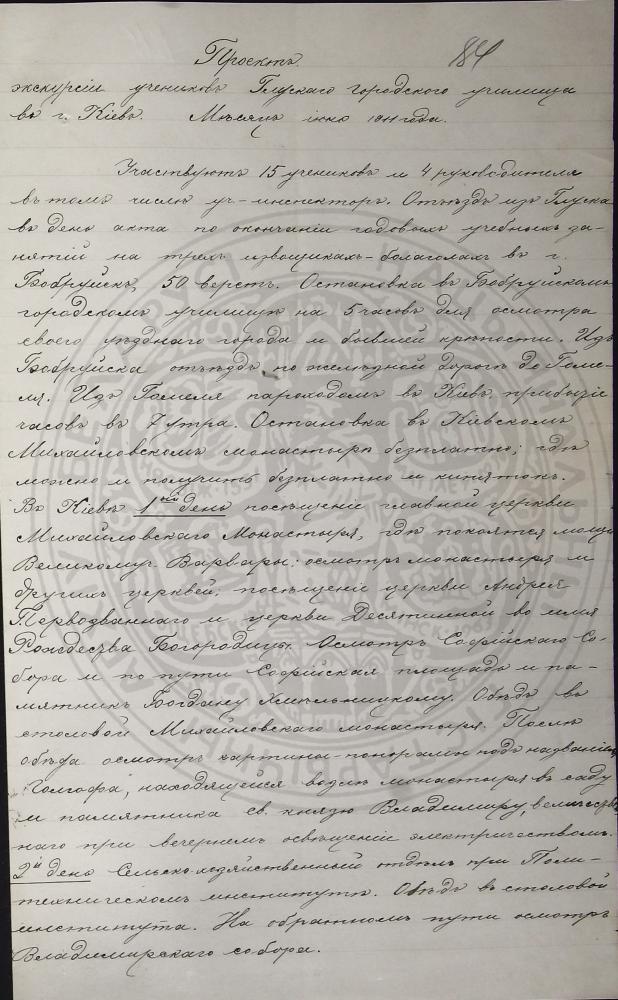 Проектъ
84
экскурсіи учениковъ Глускаго городского училища
въ г. Кіевъ. Мѣсяцъ іюнь 1911 года.
Участвуютъ 15 учениковъ и 4 руководителя
въ томъ числѣ уч-инспекторъ. Отъѣздъ изъ Глуска
въ день акта по окончаніи годовыхъ учебныхъ за-
нятій на трехъ извощикахъ-балаголахъ въ г.
Бобруйскъ, 50 верстъ. Остановка въ Бобруйскомъ
городскомъ училищѣ на 5 часовъ для осмотра
своего уѣзднаго города и бывшей крѣпости. Изъ
Бобруйска отъѣздъ по желѣзной дорогѣ до Гоме-
ля. Изъ Гомеля пароходомъ въ Кіевъ, прибытіе
часовъ въ 7 утра. Остановка въ Кіевскомъ
Михайловскомъ монастырѣ безплатно; гдѣ
можно и получить безплатно и кипятокъ.
Въ Кіевѣ 1ый день посѣщеніе главной церкви
Михайловскаго Монастыря, гдѣ покоятся мощи
Великомуч. Варвары; осмотръ монастыря и
другихъ церквей; посѣщеніе церкви Андрея
Первозваннаго и церкви Десятинной во имя
Рождества Богородицы. Осмотръ Софійскаго Со-
бора и по пути Софійская площадь и па-
мятникъ Богдану Хмѣльницкому. Обѣдъ въ
столовой Михайловскаго монастыря. Послѣ
обѣда осмотръ картины панорамы подъ названіемъ
Голгофа, находящейся возлѣ монастыря въ саду
и памятника св. князю Владимиру, величестве
наго при вечернемъ освѣщеніи электричествомъ.
2й день Сельско-хозяйственный отдѣлъ при Поли-
техническомъ институтѣ. Обѣдъ въ столовой
института. На обратномъ пути осмотръ
Владимирскаго собора.